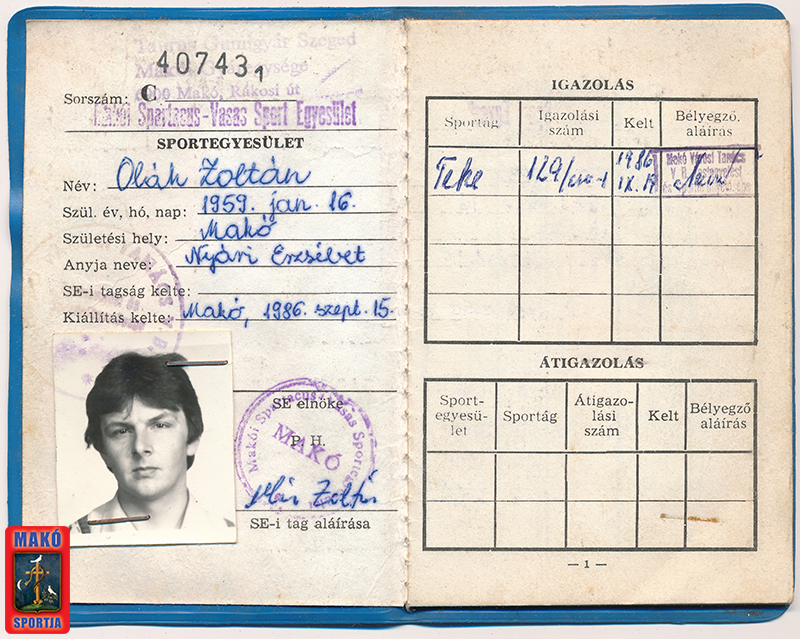 Taurus Gumigyár Szeged
407431
6900 Makó, Rákosi út
Sorszám: C
Makói Spartacus-Vasas Sport Egyesület
SPORTEGYESÜLET
Név: Oláh Zoltán
Szül. év, hó, nap: 1959. jan. 16.
Születési hely: Makó
Anyja neve: Nyári Erzsébet
SE-i tagság kelte:
Kiállítás kelte: Makó, 1986. szept. 15.
SE elnöke
P. H.
Makói Spartacus-Vasas Sport
MAKÓ
Zoltán
SE-i tag aláírása
MAKÓ
SPORTJA
IGAZOLÁS
Sportág Igazolási szám Kelt Bélyegző, aláírás
Teke 129/ 1986 IX. 18
Makó Városi Tanács
V. B.
ÁTIGAZOLÁS
Sport-egyesü-let Sportág Átigazo-lási szám Kelt Bélyegző aláírás
— 1 —